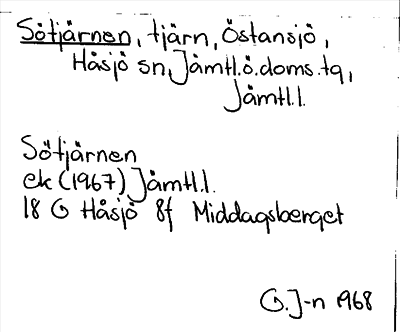 Sötjärnen, tjärn, Östansjö,
Håsjö sn, Jämtl.ö.doms.tg,
Jämtl.l.
Sötjärnen
ek (1967) Jämtl.l.
18 G Håsjö 8f Middagsberget
G.J-n 1968